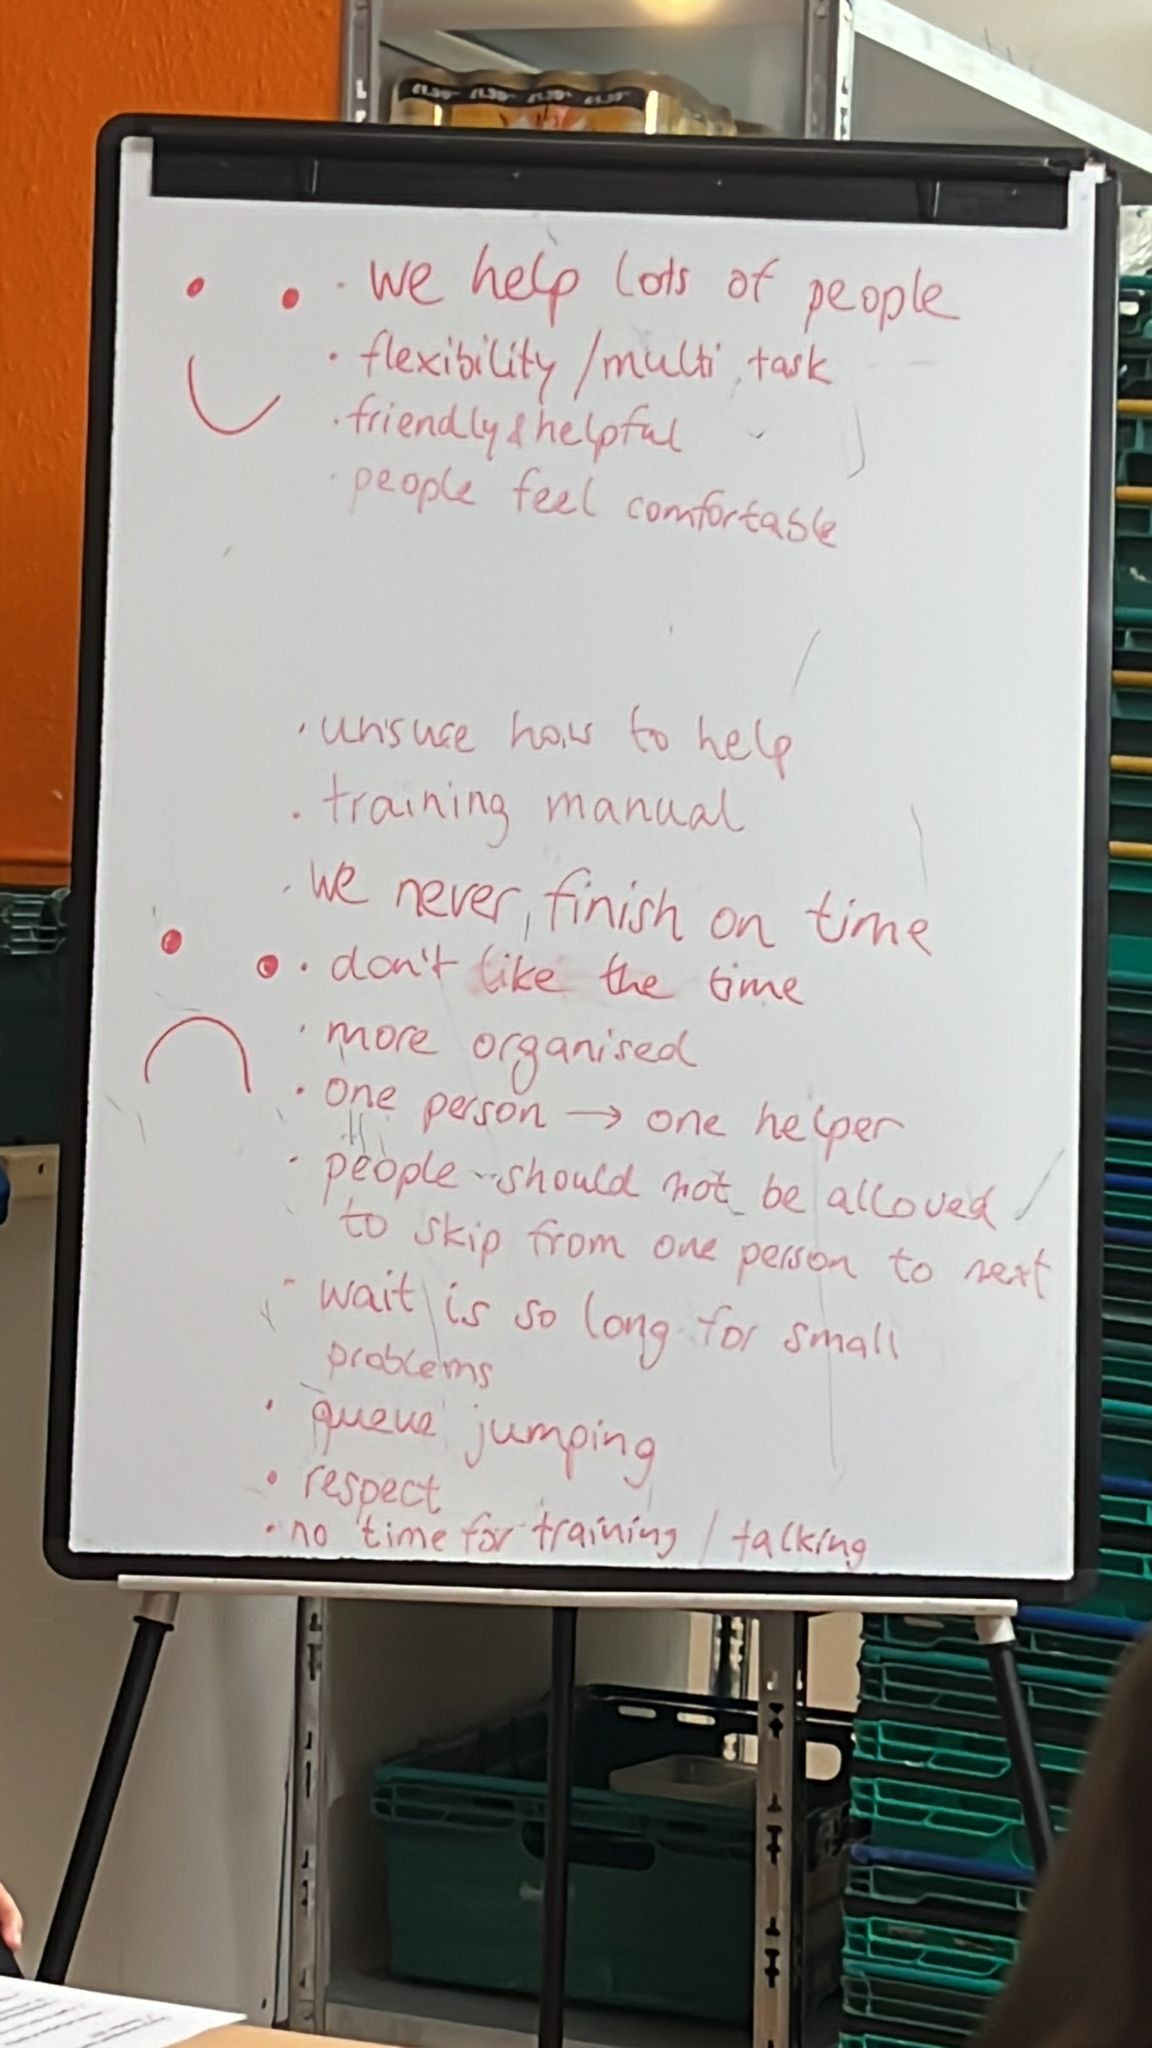 £1.39 £1.39 £1.39 £1.39
· we help lots of people
· flexibility/multi task
· friendly & helpful
· people feel comfortable
· unsure how to help
· training manual
· we never finish on time
· don't like the time
· more organised
· one person → one helper
· people should not be alloved
to skip from one person to next
- wait is so long for small
problems
· queue jumping
· respect
· no time for training / talking